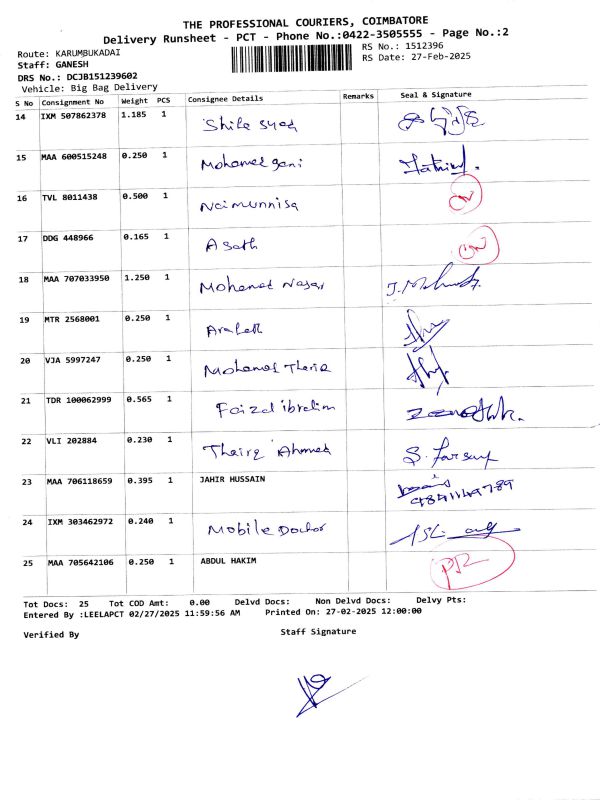 THE PROFESSIONAL COURIERS, COIMBATORE
Delivery Runsheet - PCT - Phone No.:0422-3505555 - Page No.:2
Route: KARUMBUKADAI RS No.: 1512396
Staff: GANESH RS Date: 27-Feb-2025
DRS No.: DCJB151239602
Vehicle: Big Bag Delivery
S No Consignment No Weight PCS Consignee Details Remarks Seal & Signature
14 IXM 507862378 1.185 1 Syed
15 MAA 600515248 0.250 1 Mohamed gani
16 TVL 8011438 0.500 1 Naimunnisa
17 DDG 448966 0.165 1 Asath
18 MAA 707033950 1.250 1 Mohamed Nasar
19 MTR 2568001 0.250 1
20 VJA 5997247 0.250 1 Mohamed
21 TDR 100062999 0.565 1 Faizal ibrahim
22 VLI 202884 0.230 1 Ahmed
23 MAA 706118659 0.395 1 JAHIR HUSSAIN
24 IXM 303462972 0.240 1 Mobile Doctor
25 MAA 705642106 0.250 1 ABDUL HAKIM
Tot Docs: 25 Tot COD Amt: 0.00 Delvd Docs: Non Delvd Docs: Delvy Pts:
Entered By :LEELAPCT 02/27/2025 11:59:56 AM Printed On: 27-02-2025 12:00:00
Verified By Staff Signature